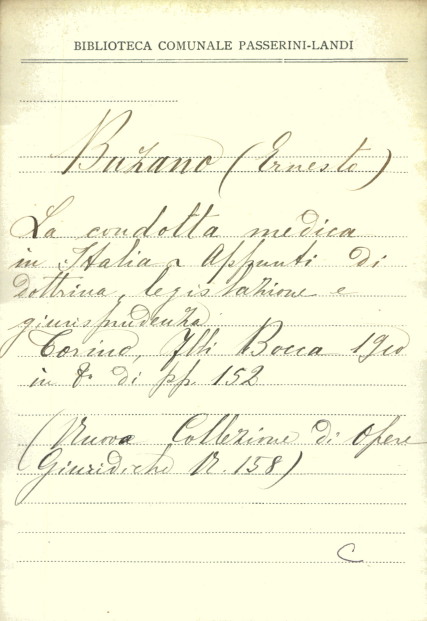 BIBLIOTECA COMUNALE PASSERINI-LANDI
Buzano (Ernesto)
La condotta medica
in Italia - Appunti di
dottrina, legislazione e
giurisprudenza
Torino, Flli Bocca 1910
in 8° di pp. 152
(Nuova Collezione di Opere
Giuridiche N. 158)
C